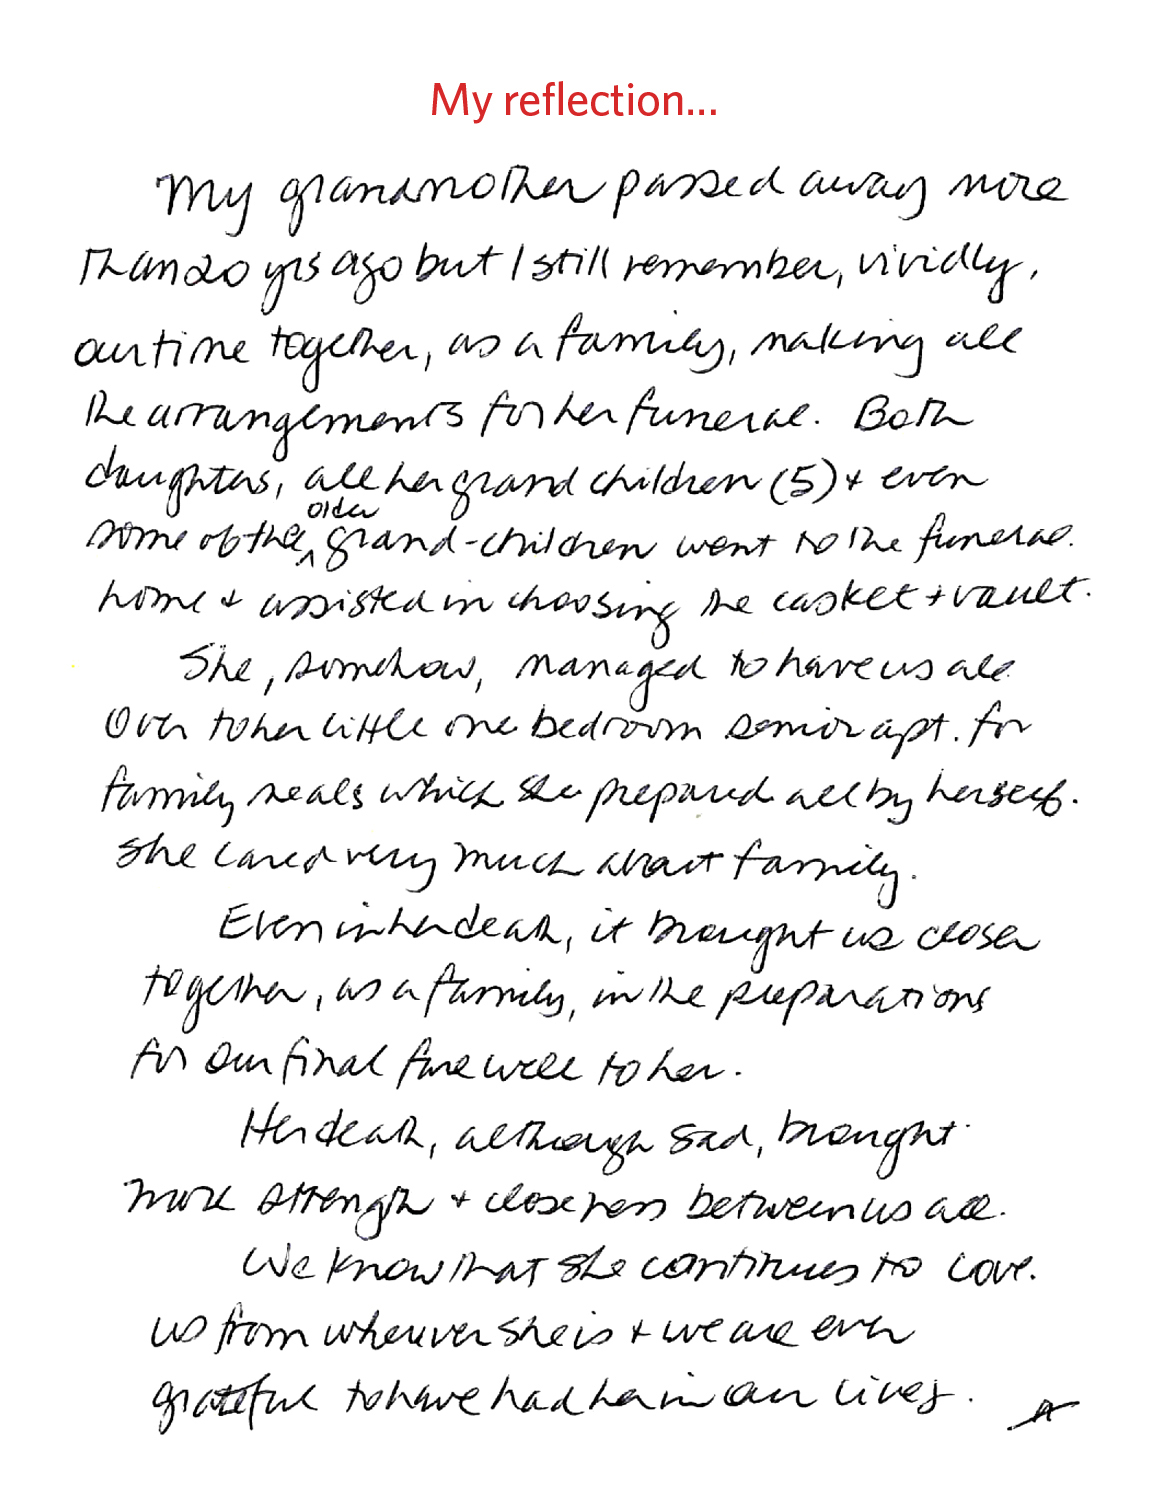 My reflection...
My grandmother passed away more
than 20 yrs ago but I still remember, vividly,
our time together, as a family, making all
the arrangements for her funeral. Both
daughters, all her grand children (5) + even
older
some of the grand-children went to the funeral
home + assisted in choosing the casket + vault.
She, somehow, managed to have us all
over to her little one bedroom senior apt. for
family meals which she prepared all by herself.
She cared very much about family.
Even in her death, it brought us closer
together, as a family, in the preparations
for our final farewell to her.
Her death, although sad, brought
more strength + closeness between us all.
We know that she continues to love
us from wherever she is + we are ever
grateful to have had her in our lives.
A